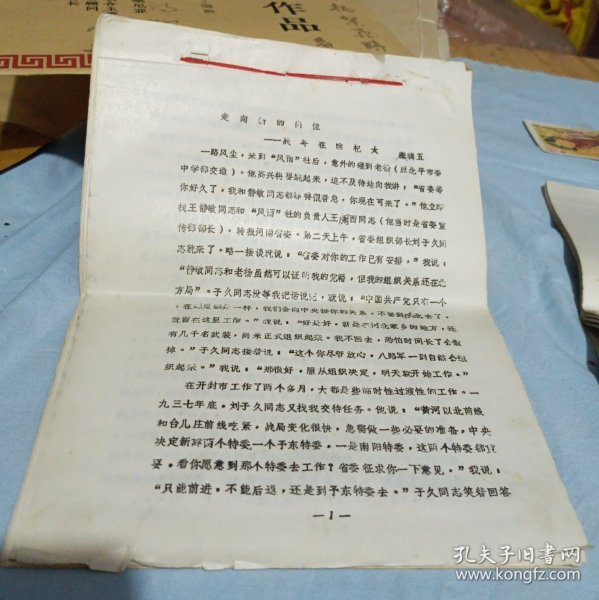 作品
走向新的岗位
——战斗在睢杞太
一路风尘，来到“风雨”社后，意外的碰到老杨（原北平市委
中学部交通）。他高兴得要跳起来，迫不及待地向我讲：“省委等
你好久了，我和静敏同志都等得很着急，你现在可来了。”他立即
找王静敏同志和“风雨”社的负责人王阑西同志（他当时是省委宣
传部部长），转我河南省委。第二天上午，省委组织部长刘子久同
志就来了。略一接谈就说：“省委对你的工作已有安排，”我说：
“静敏同志和老杨虽然可以证明我的党籍，但我的组织关系还在北
方局”。子久同志没等我把话说完，就说：“中国共产党只有一个
就留在这里工作。”我说：“好是好，就是在河北家乡的地方，还
有几千名武装，尚未正式组织起来。我不回去，恐怕时间长了会散
掉。”子久同志接着说：“这个你尽管放心，八路军一到自然会组
织起来。”我说：“那很好，服从组织决定，明天就开始工作。”
在开封市工作了两个多月，大都是些临时性过渡性的工作。一
九三七年底，刘子久同志又找我交待任务。他说：“黄河以北前线
和台儿庄前线吃紧，战局变化很快，急需做一些必要的准备，中央
决定新建两个特委一个予东特委，一是南阳特委，这两个特委都重
要，看你愿意到那个特委去工作？省委征求你一下意见。”我说：
“只能前进，不能后退，还是到予东特委去。”子久同志笑着回答
—1—
孔夫子旧书网
www.kongfz.com